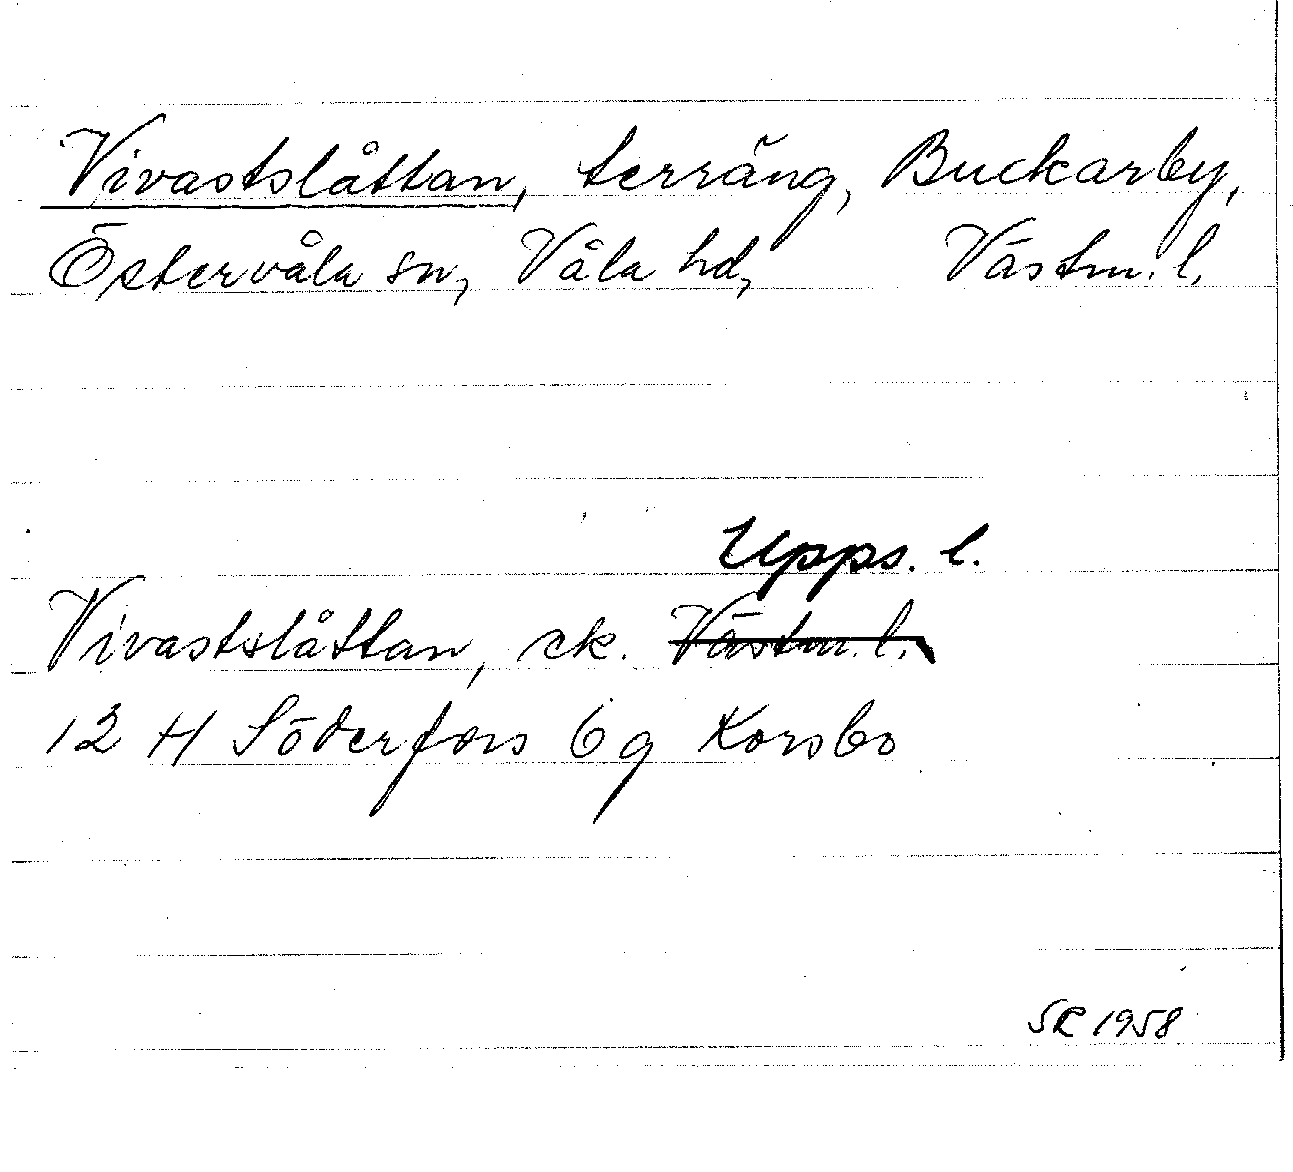 Vivastslåttan, terräng, Buckarby,
Östervåla sn, Våla hd, Västm. l.
Upps. l.
Vivastslåttan, ek. Västm. l.
12 H Söderfors 6g Korsbo
SR 1958